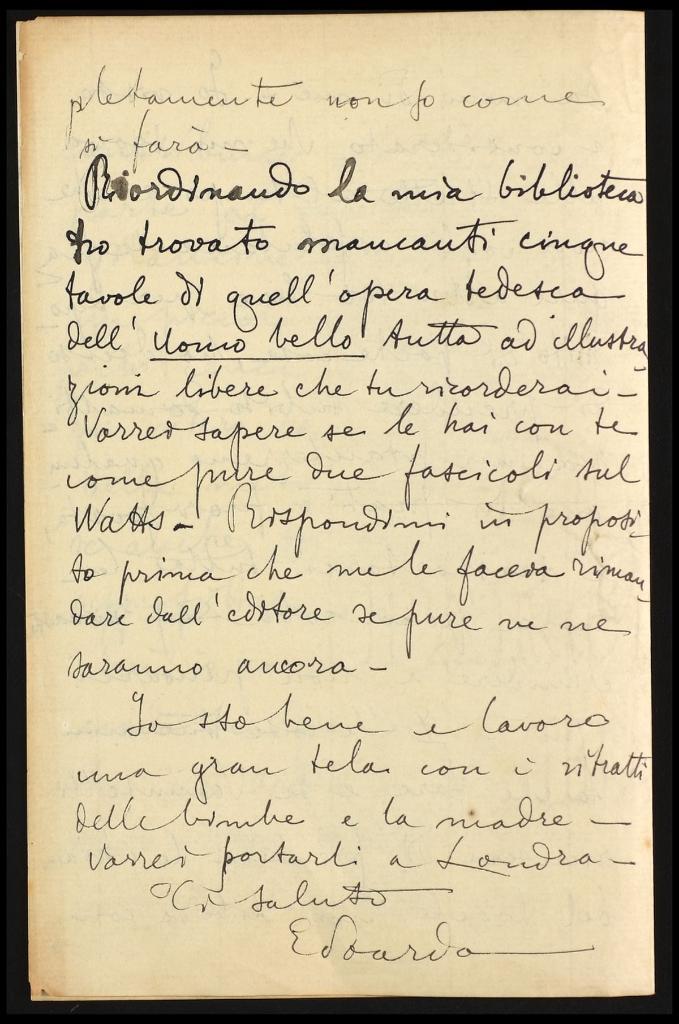 pletamente non so come
si farà -
Riordinando la mia biblioteca
ho trovato mancanti cinque
tavole di quell'opera tedesca
dell' Uomo bello tutta ad illustra-
zioni libere che tu ricorderai -
Vorrei sapere se le hai con te
come pure due fascicoli sul
Watts - Rispondimi in proposi-
to prima che me le faccia riman-
dare dall' editore se pure ve ne
saranno ancora -
Io sto bene e lavoro
una gran tela con i ritratti
delle bimbe e la madre -
Vorrei portarli a Londra -
Ti saluto
Edoardo